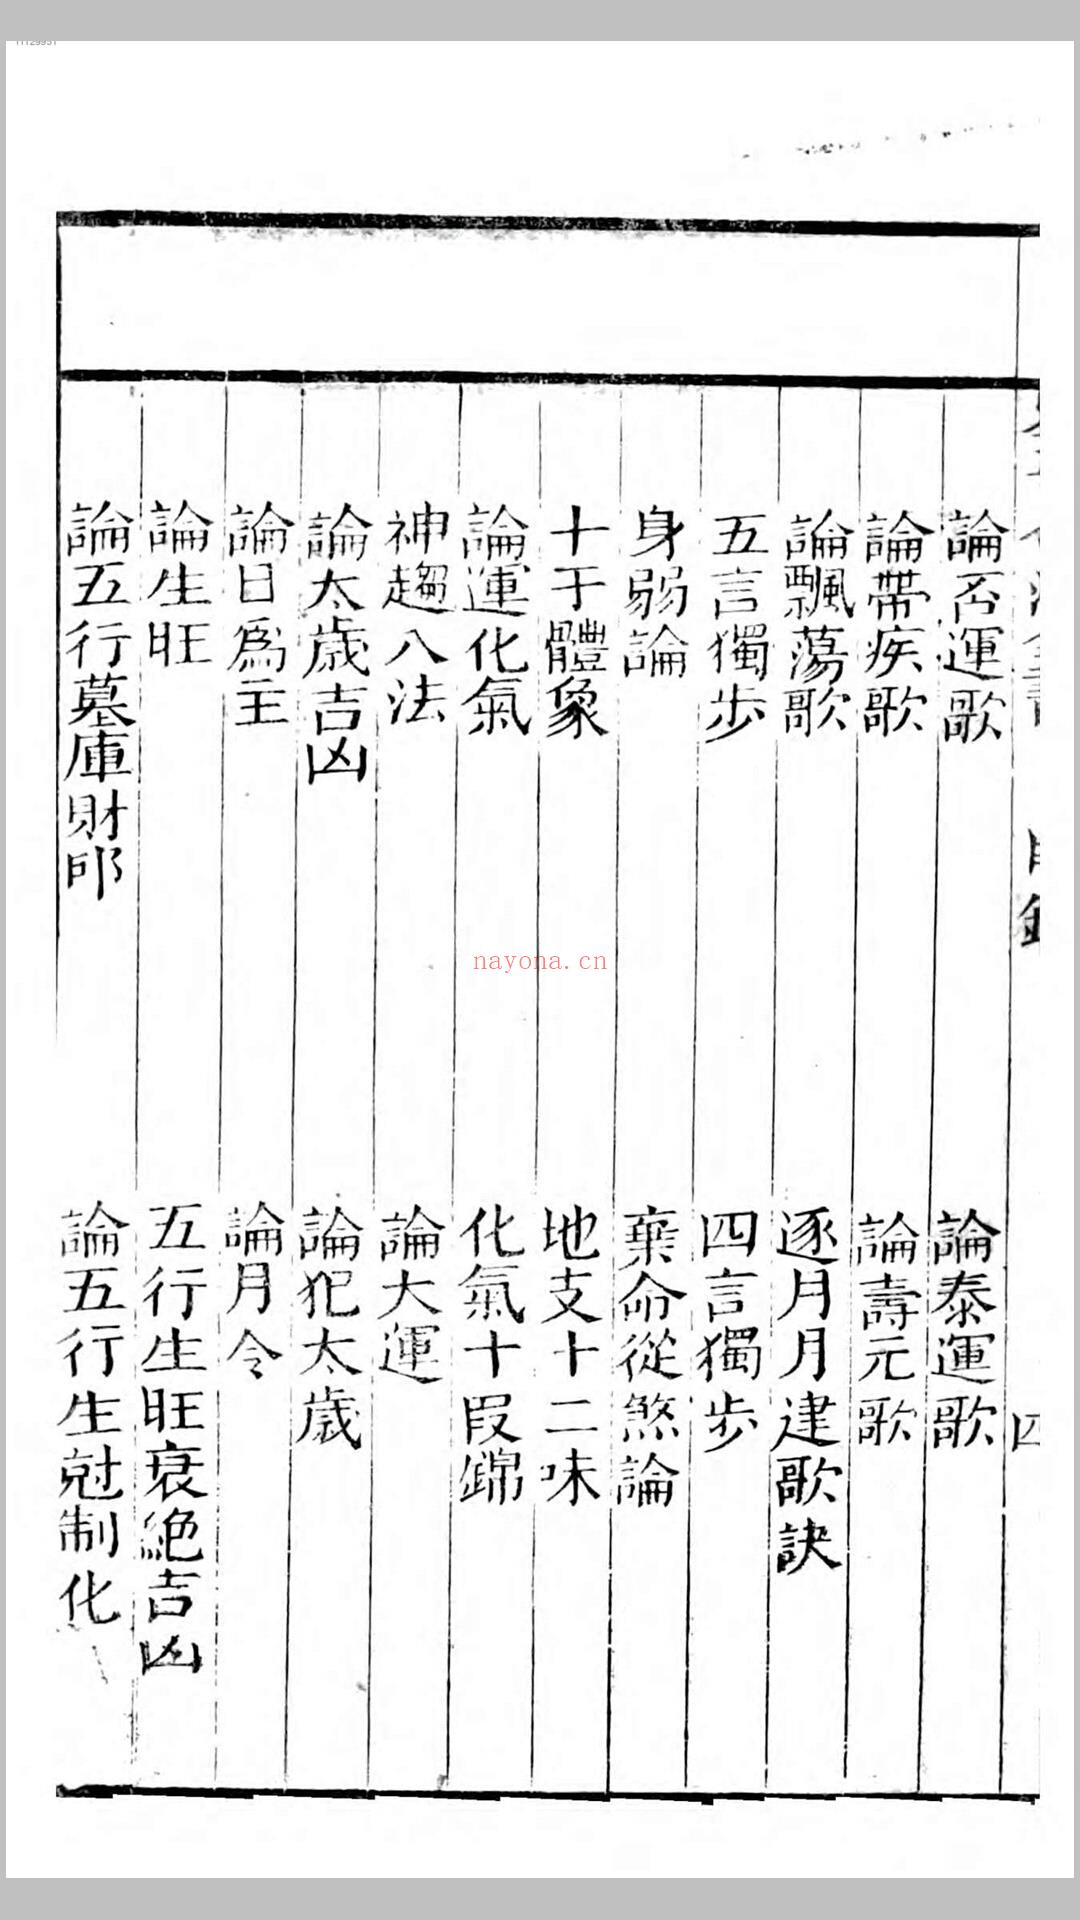 目錄
四
論否運歌
論泰運歌
論帶疾歌
論壽元歌
論飄蕩歌
逐月月建歌訣
五言獨步
四言獨步
身弱論
棄命從煞論
十干體象
地支十二味
論運化氣
化氣十段錦
神趨八法
論大運
論太歲吉凶
論犯太歲
論日爲主
論月令
論生旺
五行生旺衰絕吉凶
論五行墓庫財印
論五行生尅制化
nayona.cn